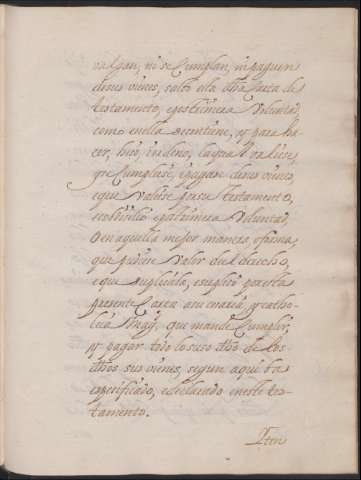 valgan, ni se Cumplan, ni paguen
de sus vienes, salvo esta dha Carta de
testamento, epostrimera Voluntad,
como enella secontiene, y para ha
cer,
que Cumpliese, epagase desus vienes,
eque Valiese por su testamento,
ecobdicilio epostrimera Voluntad,
O en aquella mejor manera, eforma,
que podia Valer de derecho,
e que suplicaba, esuplicó por esta
presente Carta a su cesaria, ycatho-
lica Magd, que mande Cumplir,
y pagar todo lo suso dho de los
dhos sus vienes, segun aqui va
especificado, edeclarado en este tes-
tamento.
Iten